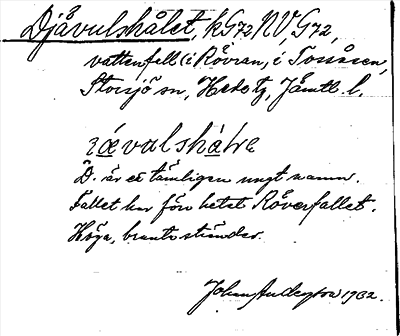 Djävulshålet, kG72NV, G72,
vattenfall (i Rövran, i Tossåsen,
Storsjö sn, Hede tg, Jämtl. l.
D. är ett tämligen ungt namn.
Fallet har förr hetat Röverfallet.
Höga, branta stränder.
1932.